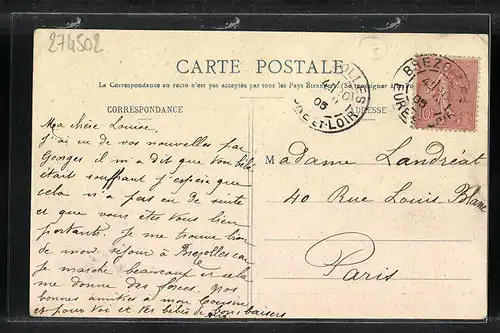 274502
CARTE POSTALE
La Correspondance au recto n'est pas acceptée par tous les Pays Étrangers (Se renseigner à la Poste)
CORRESPONDANCE
ADRESSE
BREZOLLES
05
EURE-ET-LOIR
BREZOLLES
05
EURE-ET-LOIR
10
Ma chère Louise,
J'ai eu de vos nouvelles par
Georges il m'a dit que ton bébé
était souffrant j'espère que
cela n'a pas eu de suite
et que vous êtes tous bien
portants. Je me trouve bien
de mon séjour à Brezolles car
je marche beaucoup et cela
me donne des forces. Nos
bonnes amitiés à mon Cousin
et pour toi et tes bébés de bons baisers
M
Madame Landréat
40 Rue Louis Blanc
Paris